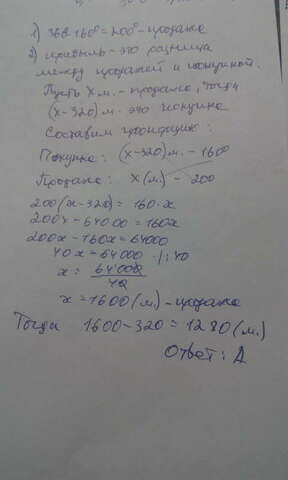 1) 360°-160°=200° - продажа
2) прибыль - это разница
между продажей и покупкой.
Пусть х м. - продажа, тогда
(х-320) м. это покупка
Составим пропорцию:
Покупка: (х-320) м. - 160°
Продажа: х (м) - 200
200(х-320) = 160·х
200х - 64000 = 160х
200х - 160х = 64000
40х = 64000 |:40
х = 64000
40
х = 1600 (м.) - продажа
Тогда 1600-320 = 1280 (м.)
Ответ: А